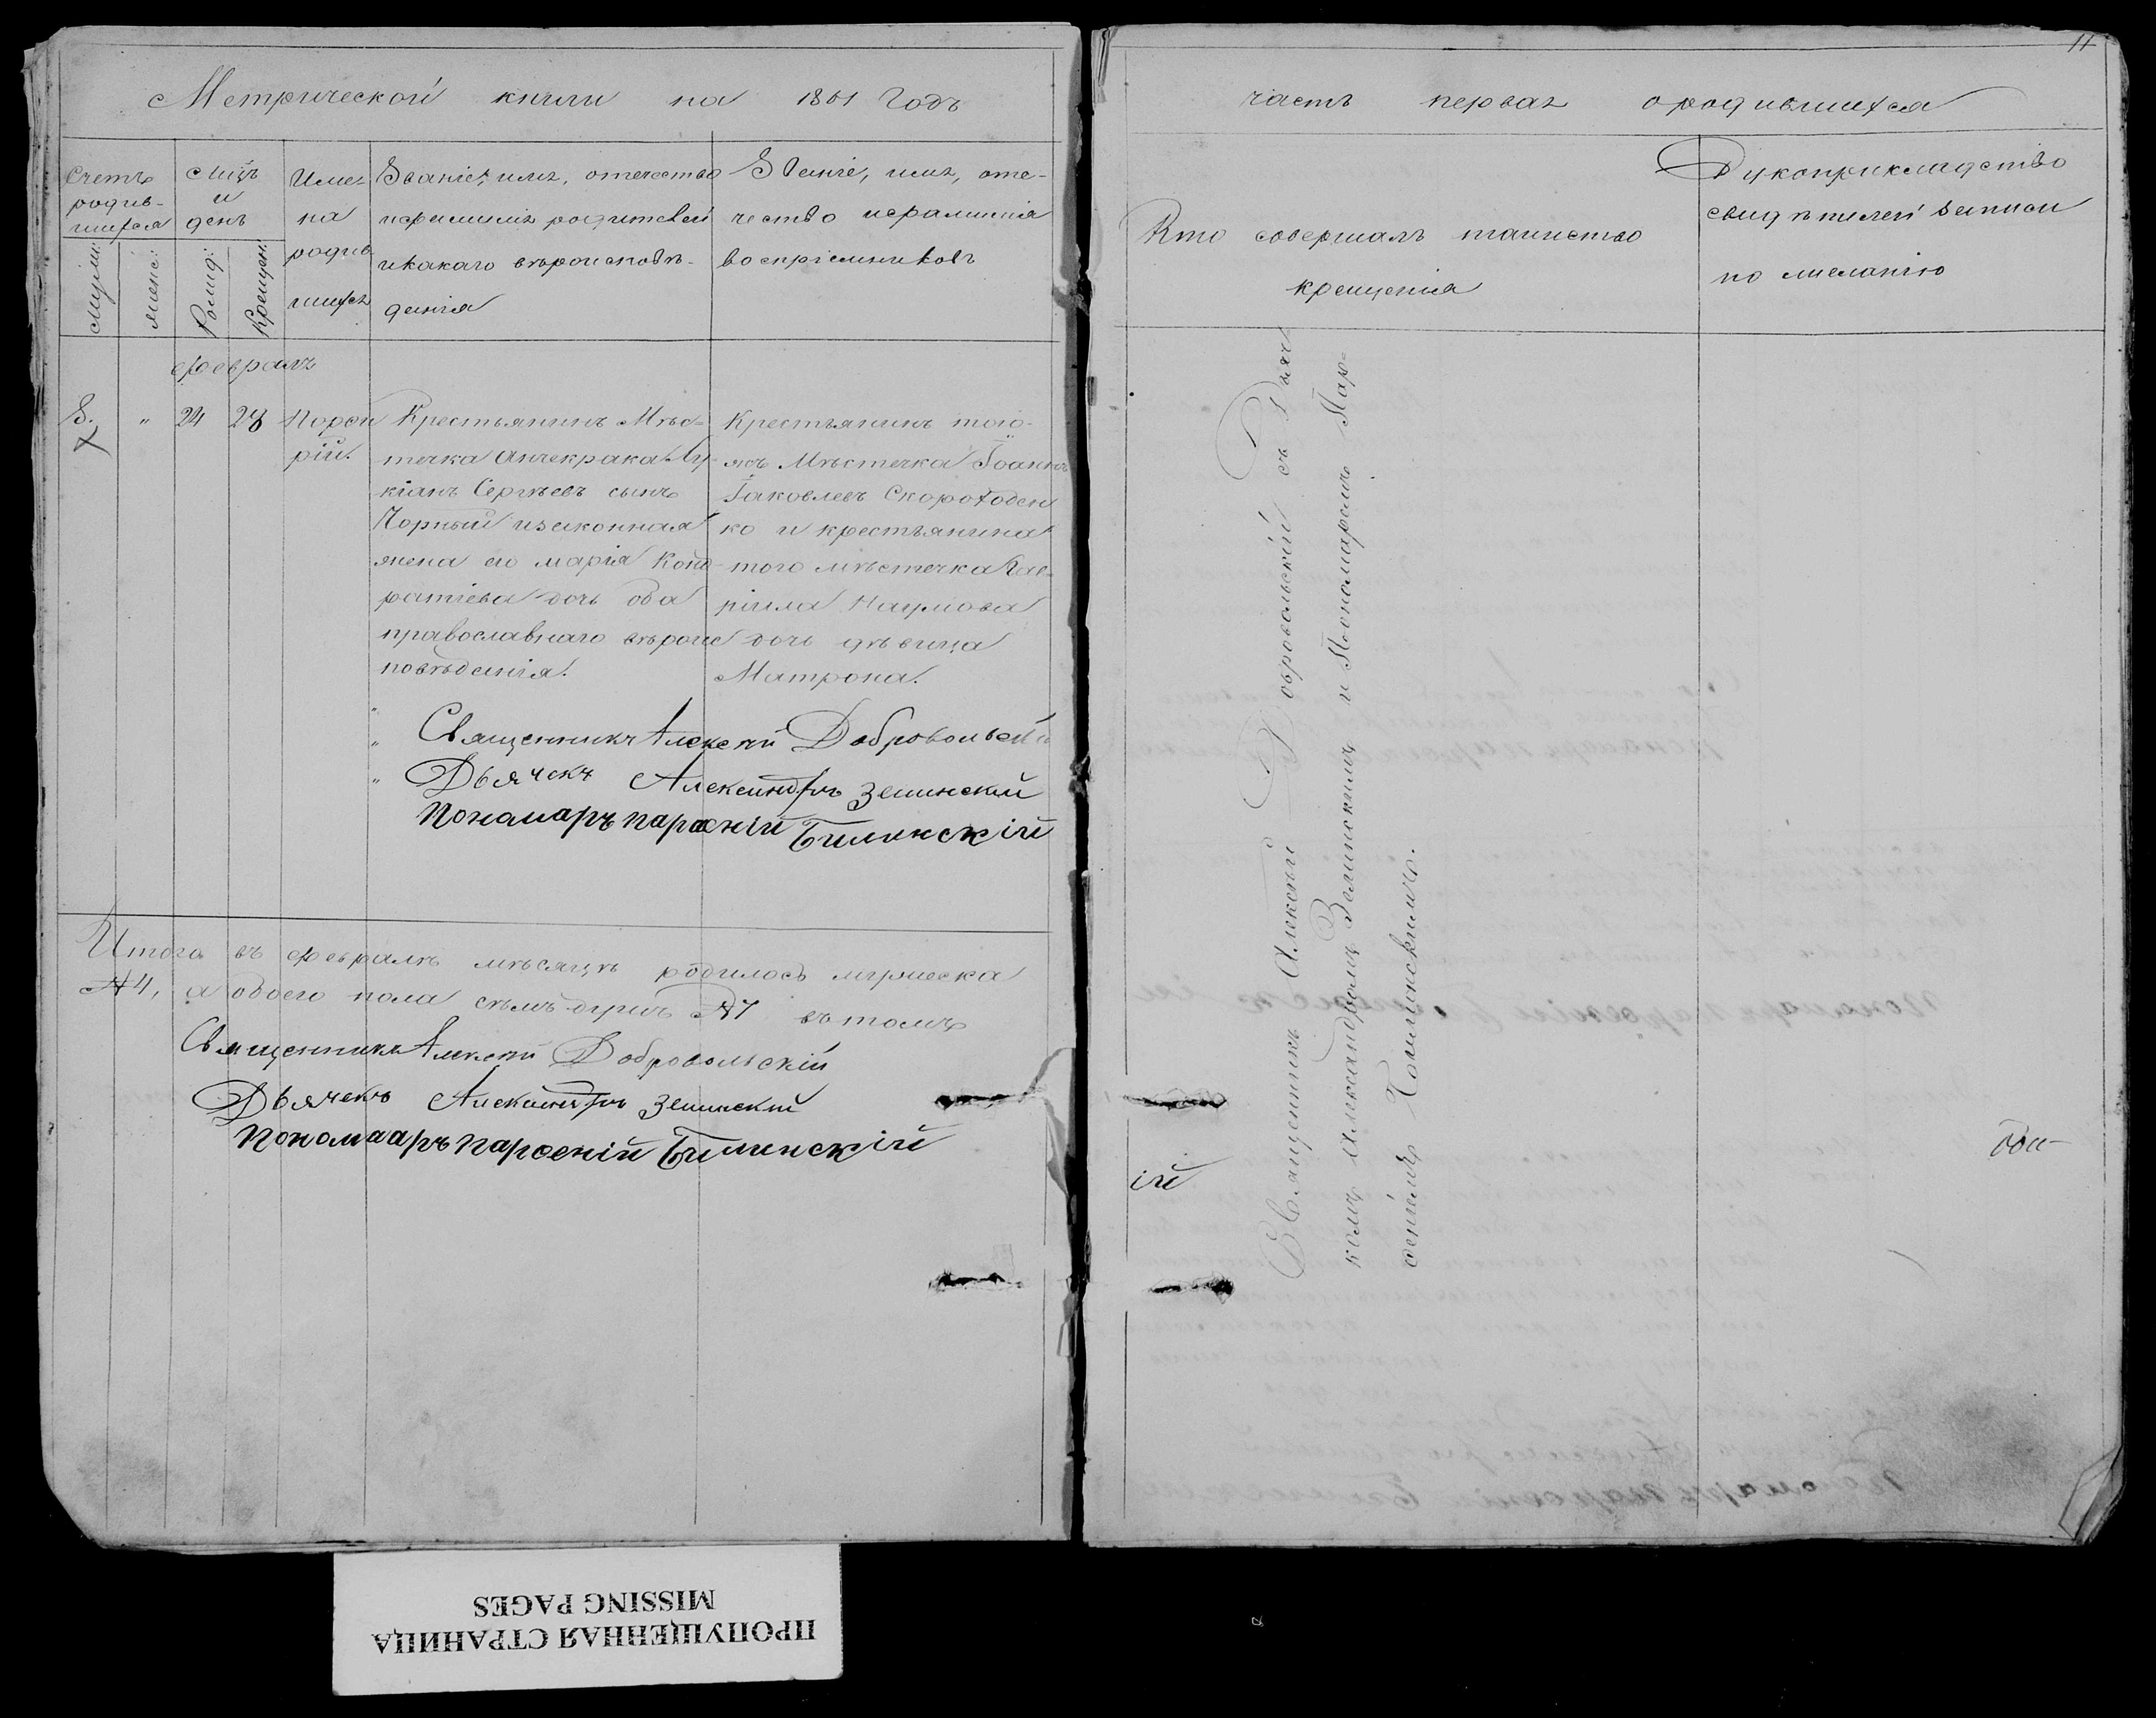 Метрической книги на 1861 Годъ
Счетъ родив-шихся
Мужес:
женс:
Мцъ и день
Рожд:
Крещен:
Имена родив шихся
Званіе, имя, отечество
ифамилія родителей
икакаго вѣроисповѣ-
данія
Званіе, имя, оте-
чество ифамилія
воспріемниковъ
Февраль
8. „ 24 28
Порфи
рій.
Крестьянинъ Мѣс-
течка Анчекрака Лу-
кіанъ Сергѣевъ сынъ
Чорный изаконная
жена его Марія Конд-
ратіева дочь оба
православнаго вѣроис
повѣданія.
Крестьянинъ того-
жъ Мѣстечка Іоаннъ
Іаковлевъ Скороходен
ко и крестьянина
того мѣстечка Гав-
ріила Наумова
дочь дѣвица
Матрона.
„
„ Священникъ Алексій Добровольскій
„ Дьячекъ Александръ Зелинскій
Пономарь парфеній Билинскій
Итого въ Февралѣ мѣсяцѣ родилось мужеска
№ 4, а обоего пола семь душъ № 7 въ томъ
Священникъ Алексій Добровольскій
Дьячекъ Александръ Зелинскій
Пономаарь парфеній Билинскій
11
часть первая ородившихся
Кто совершалъ таинство
крещенія
Рукоприкладство
свидѣтелей записи
по желанію
Священникъ Алексій Добровольскій съ Дьяч
комъ Александромъ Зелинскимъ и Пономаремъ Пар-
феніемъ
ій
ПРОПУЩЕННАЯ СТРАНИЦА
MISSING PAGES